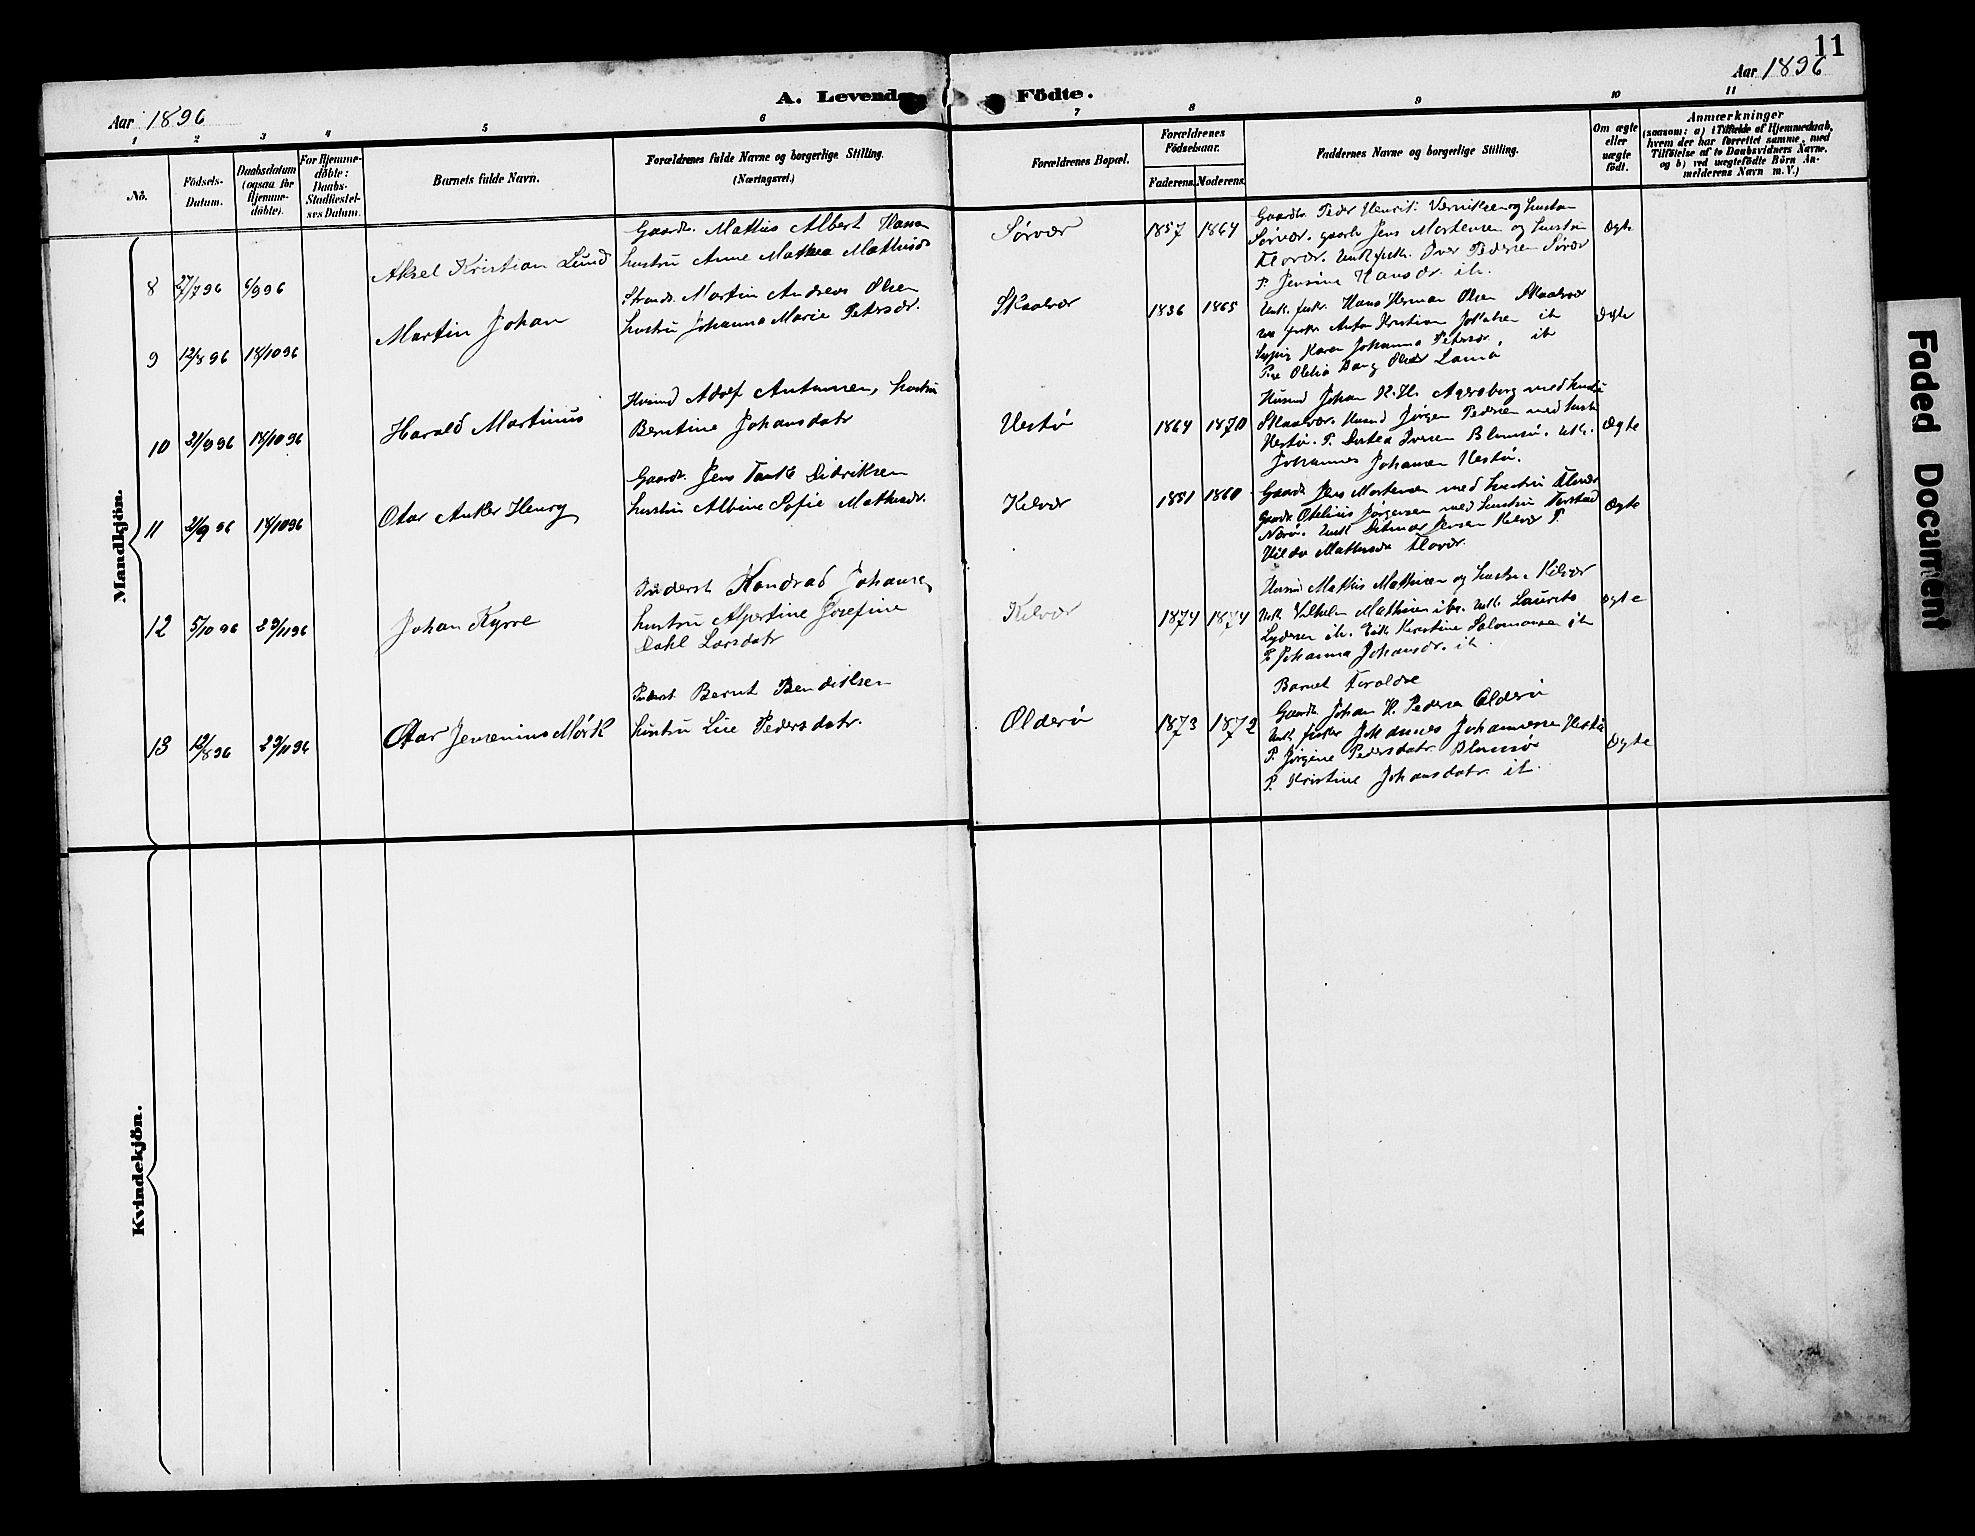 11
Aar 1896
A. Levende Födte.
Aar 1896
1 2 3 4 5 6 7 8 9 10 11
No.
Födsels-Datum.
Daabsdatum (ogsaa for Hjemme-döbte).
For Hjemme-döbte: Daabs-Stadfæstel-ses Datum.
Barnets fulde Navn.
Forældrenes fulde Navne og borgerlige Stilling. (Næringsvei.)
Forældrenes Bopæl.
Forældrenes Fødselsaar.
Faderens. Moderens.
Faddernes Navne og borgerlige Stilling.
Om ægte eller uægte födt.
Anmærkninger
(saasom: a) i Tilfælde af Hjemmedaab,
hvem der har forrettet samme, med
Tilföielse af to Daabsvidners Navne,
og b) ved uægtefödte Börn An-
melderens Navn m. V.)
Mandkjön.
8 27/7 96 6/9 96 Aksel Kristian Lund
Gaardb. Mathis Albert Hansen
hustru Anne Mathea Mathisdr
Sörvær 1857 1864
Gaardb. Peder Henrik Værniksen og hustru
Sörvær. gaardb Jens Mortensen og hustru
Flovær. Unk. fisk. Iver Pedersen Sörvær
P. Jensine Hansdr. ib.
Ægte
9 12/8 96 18/10 96 Martin Johan
Strands. Martin Andreas Olsen
hustru Johanna Marie Petersdr.
Skaalvær 1836 1865
Unk. fisk. Hans Herman Olsen Skaalvær
fisk. Anton Kristian ib
Karen Johanna Petersdr. ib
Olsdr Lamö
Ægte
10 21/9 96 18/10 96 Harald Martinus
Husmd Adolf Antonsen, hustru
Berntine Johansdatr
Vestö 1864 1870
Husmd Johan H. H. med hustru
Skaalvær. Husmd Jörgen Pedersen med hustru
Hestö. P. Dortea Iversen Blomsö. Unk.
Johannes Johansen Hestö.
Ægte
11 21/9 96 18/10 96 Otar Anker Henry
Gaardb. Jens Tank Didriksen
hustru Albine Sofie Mathisdr.
Kilvær 1851 1860
Gaardb Jens Mortensen med hustru Flovær
Gaardb Otelius Jörgensen med hustru
Nærö. Unk Ditmar Jensen Kilvær P.
Hilda Mathisdr Flovær.
Ægte
12 5/10 96 29/11 96 Johan Kyrre
Inderst Kondrad Johansen
hustru Alpertine Josefine
Dahl Larsdatr
Kilvær 1874 1874
Husmd Mathis Mathisen og hustru Kilvær
Unk Vilhelm Mathisen ibr. Unk. Laurits
Lydersen ib. Enk Kirstine Salomonsen ib
P. Johanna Johansdr. ib
Ægte
13 12/8 96 29/11 96 Otar Jensenius Mörk
Inderst Bernt Bendiksen
hustru Lise Pedersdatr.
Olderö 1873 1872
Barnet Foraldre
Gaardb Johan H. Pedersen Olderö
Unk fisker Johannes Johannesen Hestö
P. Jörgine Pedersdatr Blomsö
P. Kristine Johansdatr. ib.
Ægte
Kvindekjön.
Faded Document